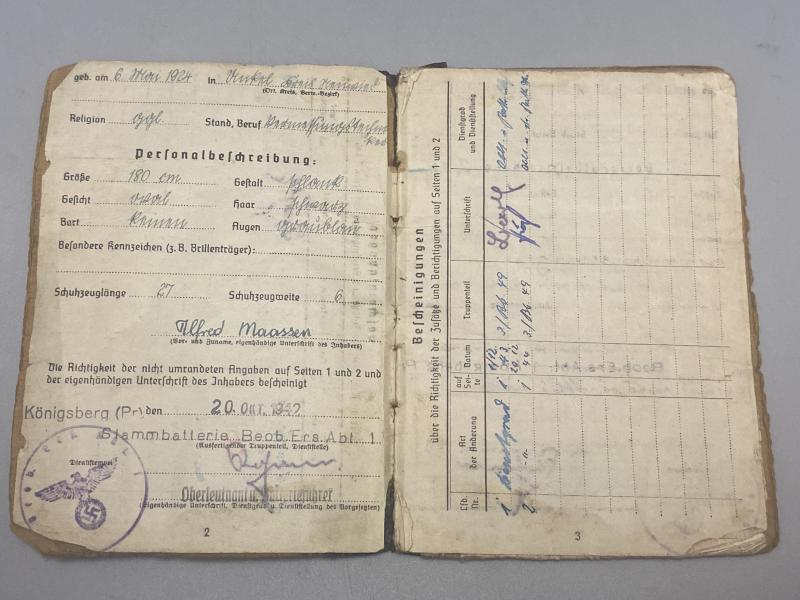 geb. am 6. Mai 1924 in Unkel Kreis Neuwied
(Ort, Kreis, Verw.-Bezirk)
Religion ggl Stand, Beruf Vermessungstechni
ker
Personalbeschreibung:
Größe 180 cm Gestalt schlank
Gesicht oval Haar schwarz
Bart keinen Augen graublau
Besondere Kennzeichen (z.B. Brillenträger):
Schuhzeuglänge 27 Schuhzeugweite 6
Alfred Maassen
(Vor- und Zuname, eigenhändige Unterschrift des Inhabers)
Die Richtigkeit der nicht umrandeten Angaben auf Seiten 1 und 2 und
der eigenhändigen Unterschrift des Inhabers bescheinigt
Königsberg (Pr) den 20. Okt. 1942
Stammbatterie Beob.Ers.Abt. 1
(Ausfertigender Truppenteil, Dienststelle)
Dienststempel
Oberleutnant u. Batterieführer
(Eigenhändige Unterschrift, Dienstgrad u. Dienststellung des Vorgesetzten)
2
Bescheinigungen
über die Richtigkeit der Zusätze und Berichtigungen auf Seiten 1 und 2
Lfd. Nr.
Art der Änderung
auf Seite
Datum
Truppenteil
Unterschrift
Dienstgrad und Dienststellung
1 Dienstgrad 1 1.12. 43 3./Bb. 49
2 -"- 1 20.12 44 3./Bb. 49
3